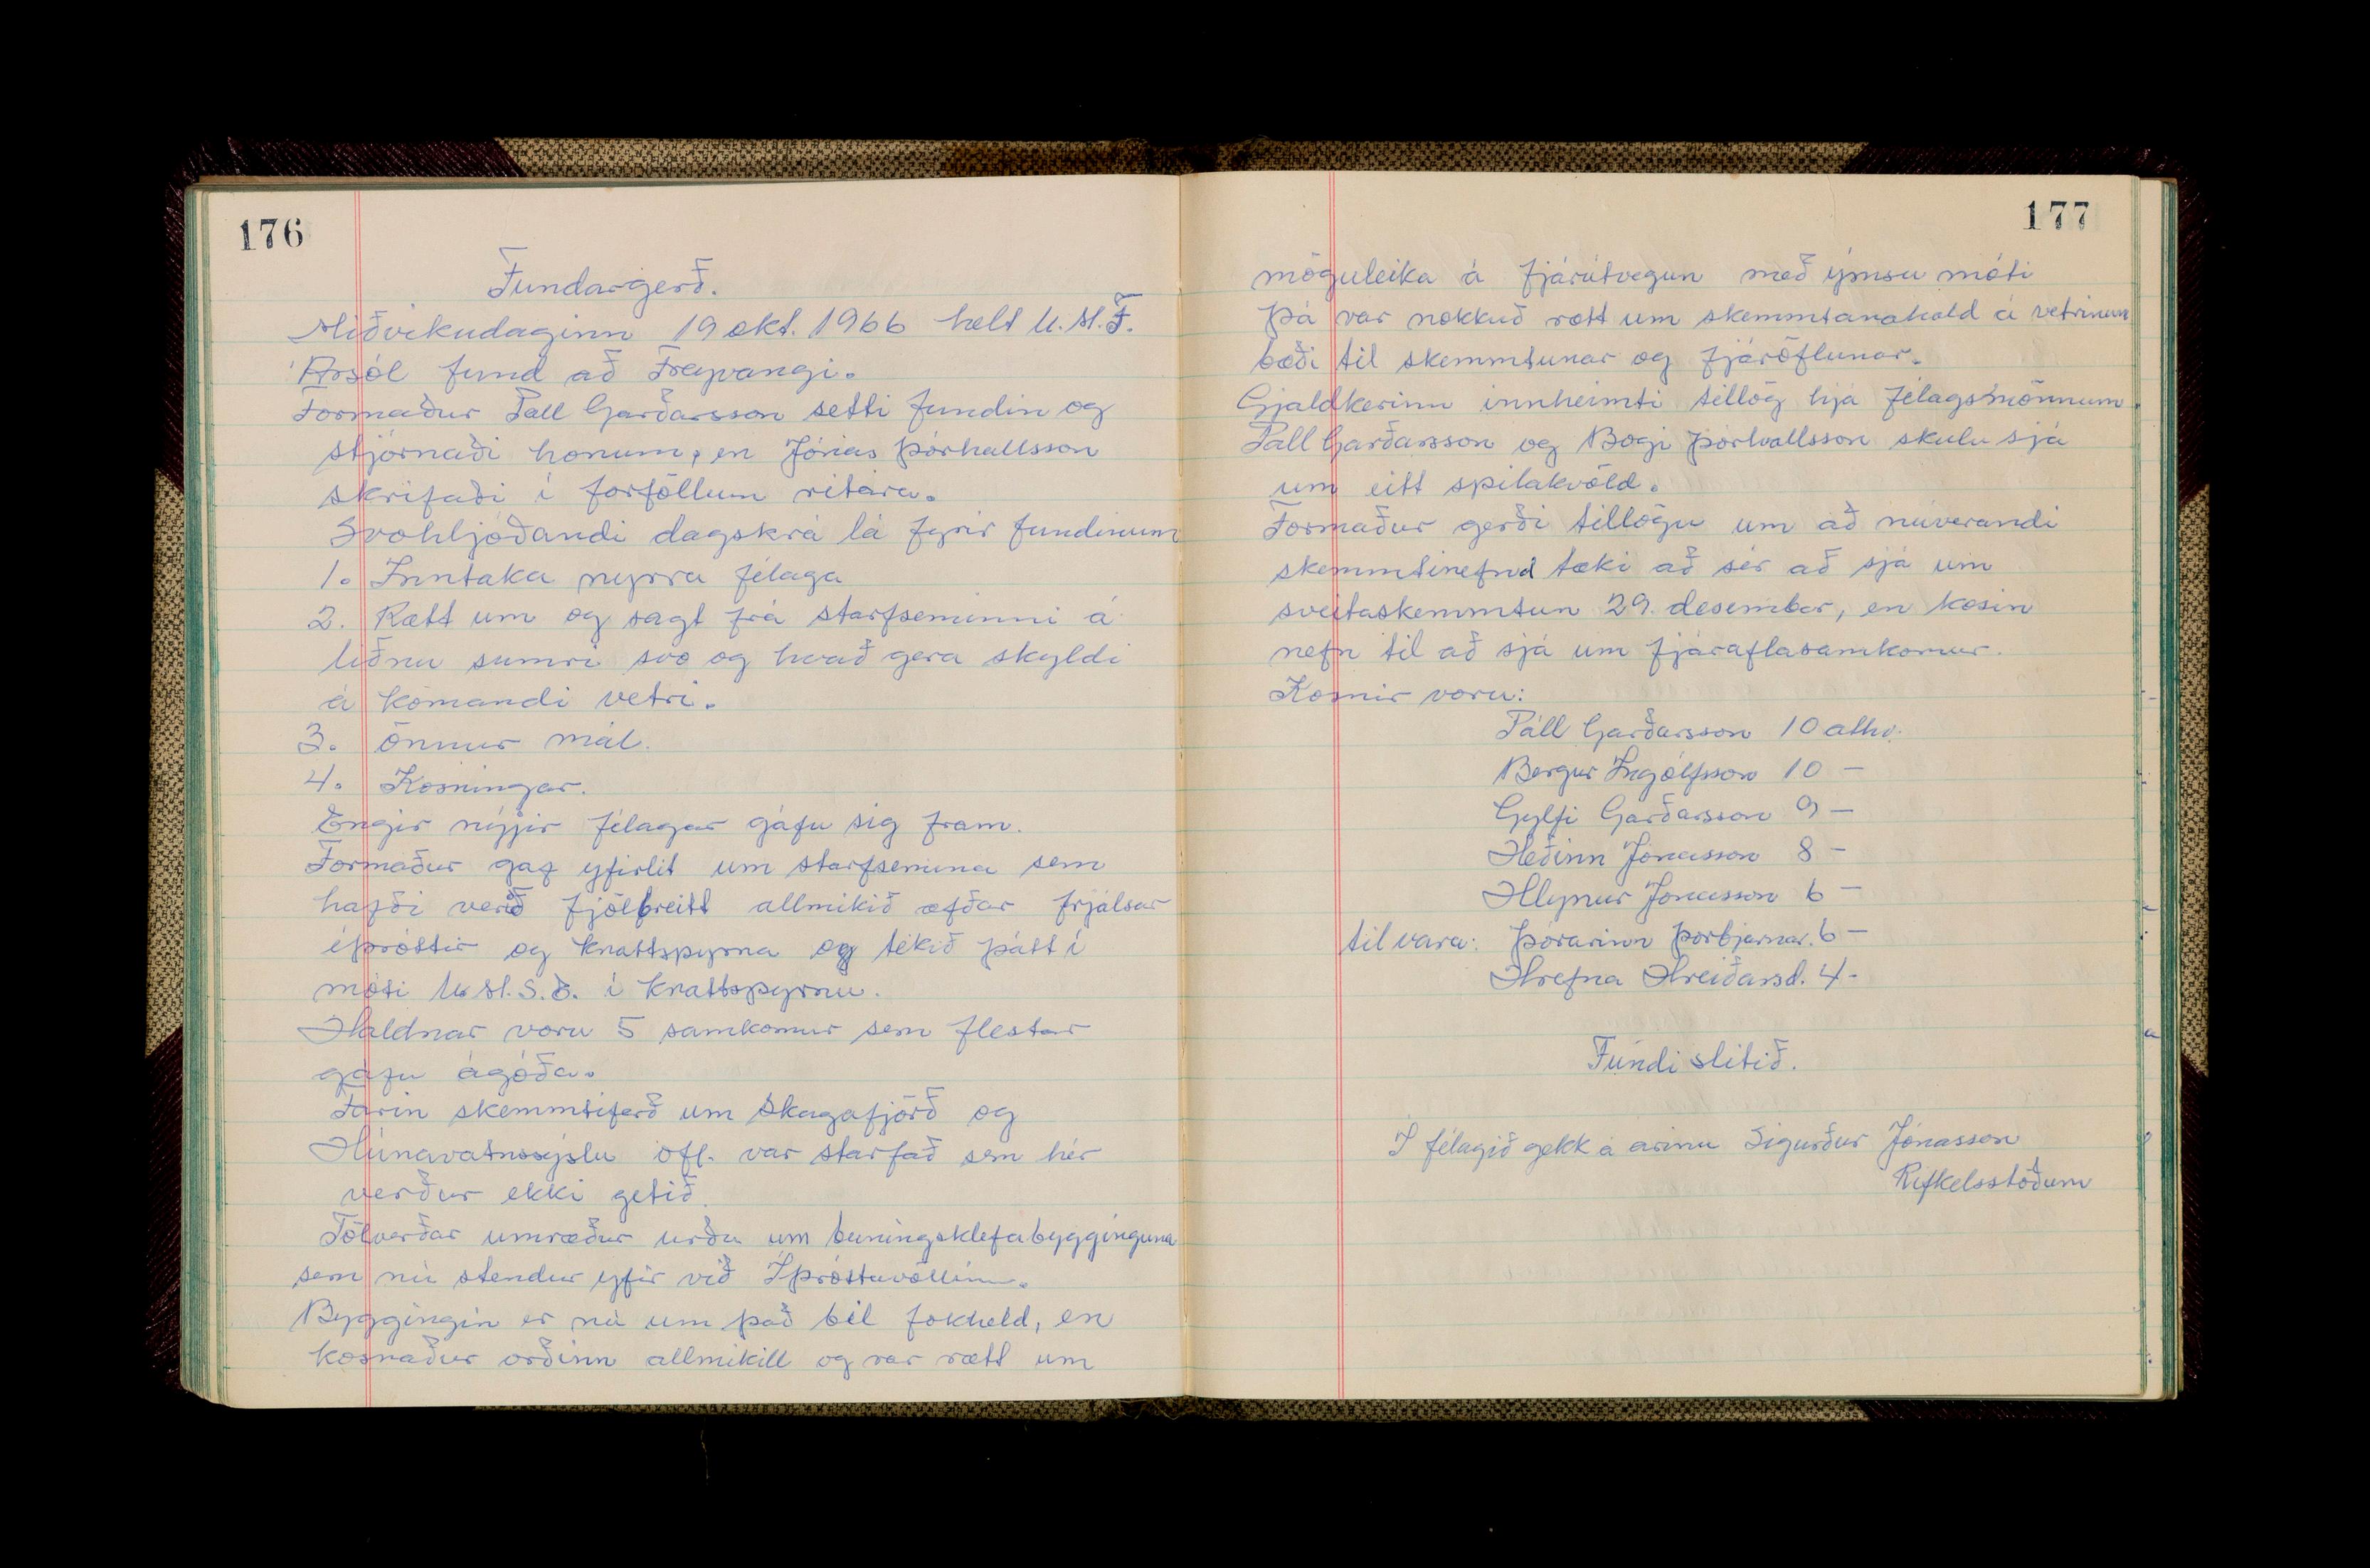 176
Fundargerð.
Miðvikudaginn 19 okt. 1966 helt U.M.F.
Ársól fund að Freyvangi.
Formaður Páll Garðarsson setti fundin og
stjórnaði honum, en Jónas Þórhallsson
skrifaði í forföllum ritara.
Svohljóðandi dagskrá lá fyrir fundinum
1. Inntaka nyrra félaga
2. Rætt um og sagt frá starfseminni á
liðnu sumri svo og hvað gera skyldi
á komandi vetri.
3. Önnur mál.
4. Kosningar.
Engir nýjir félagar gáfu sig fram.
Formaður gaf yfirlit um starfsemina sem
hafði verið fjölbreitt allmikið æfðar frjálsar
íþróttir og knattspyrna og tekið þátt í
móti U.M.S.E. í knattspyrnu.
Haldnar voru 5 samkomur sem flestar
gáfu ágóða.
Farin skemmtiferð um Skagafjörð og
Húnavatnssýslu ofl. var starfað sem hér
verður ekki getið.
Tölverðar umræður urðu um buningsklefabygginguna
sem nú stendur yfir við Íþróttavöllinn.
Byggingin er nú um það bil fokheld, en
kosnaður orðinn allmikill og var rætt um
177
möguleika á fjárútvegun með ýmsu móti
Þá var nokkuð rætt um skemmtanahald á vetrinum
bæði til skemmtunar og fjáröflunar.
Gjaldkerinn innheimti tillög hjá félagsmönnum.
Páll Garðarsson og Bogi Þórhallsson skulu sjá
um eitt spilakvöld.
Formaður gerði tillögu um að núverandi
skemmtinefnd tæki að sér að sjá um
sveitaskemmtun 29. desember, en kosin
nefn til að sjá um fjáraflasamkomur.
Kosnir voru:
Páll Garðarsson 10 atkv.
Bergur Ingólfsson 10 —
Gylfi Garðarsson 9 —
Héðinn Jónasson 8 —
Hlynur Jónasson 6 —
til vara: Þórarinn Þorbjarnar. 6 —
Hrefna Hreiðarsd. 4 -
Fundi slitið.
Í félagið gekk á árinu Sigurður Jónasson
Rifkelsstöðum